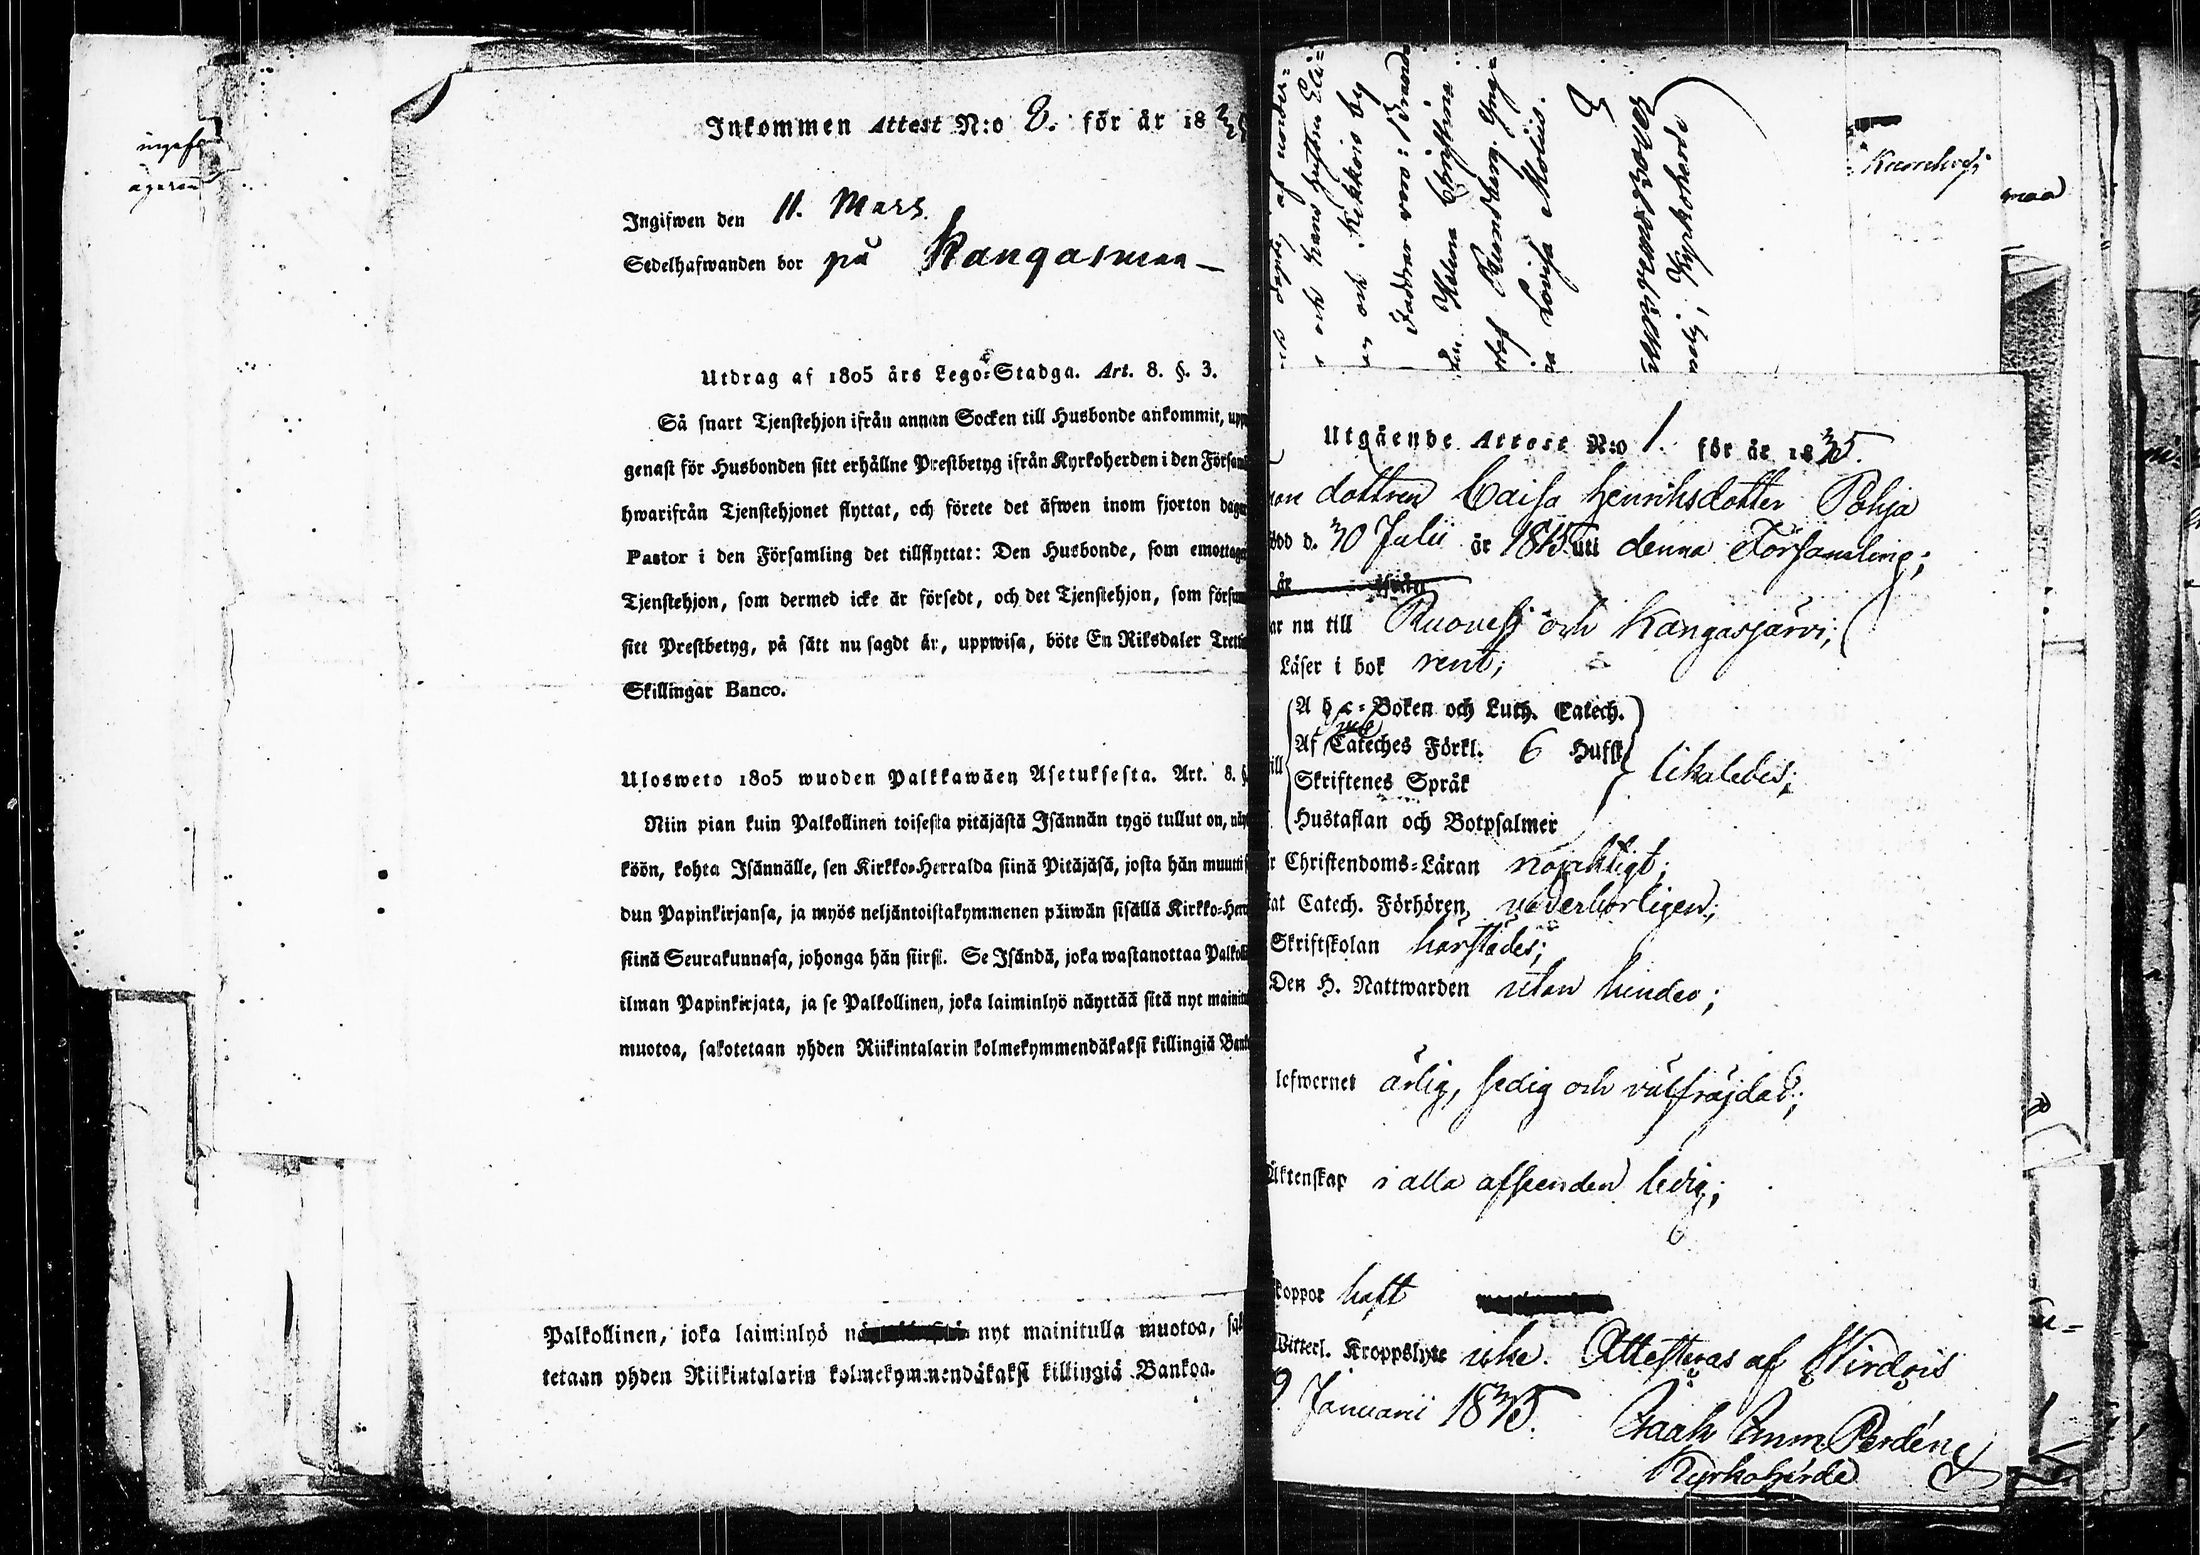 Inkommen Attest N:o 8. för år 1835
Ingifwen den 11. Mars.
Sedelhafwanden bor på Kangasmaa –
Utdrag af 1805 års Lego-Stadga. Art. 8. §. 3.
Så snart Tjenstehjon ifrån annan Socken till Husbonde ankommit, upp
genast för Husbonden sitt erhållne Prestbetyg ifrån Kyrkoherden i den Försam
hwarifrån Tjenstehjonet flyttat, och förete det äfwen inom fjorton dagar
Pastor i den Församling det tillflyttat: Den Husbonde, som emottager
Tjenstehjon, som dermed icke är försedt, och det Tjenstehjon, som försum
sitt Prestbetyg, på sätt nu sagdt är, uppwisa, böte En Riksdaler Tretti
Skillingar Banco.
Ulosweto 1805 wuoden Palkkawäen Asetuksesta. Art. 8. §
Niin pian kuin Palkollinen toisesta pitäjästä Isännän tygö tullut on, näy
köön, kohta Isännälle, sen Kirkko-Herralda siinä Pitäjäsä, josta hän muutti s
dun Papinkirjansa, ja myös neljäntoistakymmenen päiwän sisällä Kirkko-Herr
siinä Seurakunnasa, johonga hän siirsi. Se Isändä, joka wastanottaa Palkolli
ilman Papinkirjata, ja se Palkollinen, joka laiminlyö näyttää sitä nyt mainitu
muotoa, sakotetaan yhden Riikintalarin kolmekymmendäkaksi killingiä Banko
Palkollinen, joka laiminlyö nä nyt mainitulla muotoa, sako
tetaan yhden Riikintalarin kolmekymmendäkaksi killingiä Bankoa.
och Kekkois by
Faddrar voro:
Helena Christina
Lovisa Molliis.
Kyrkoherde
Utgående Attest N:o 1. för år 1835.
dottren Caisa Henriksdotter Pohja
ödd d. 30 Julii år 1815 uti denna Församling;
är ifrån
ar nu till Ruovesi och Kangasjärvi;
Läser i bok rent;
A b c-Boken och Luth. Catech.
Af Cateches Förkl. 6 Hufst
Skriftenes Språk
likaledes;
Hustaflan och Botpsalmer
r Christendoms-Läran nojaktigt;
tat Catech. Förhören vederbörligen;
Skriftskolan härstädes;
Den H. Nattwarden utan hinder;
lefwernet ärlig, sedig och välfräjdad;
Äktenskap i alla afseenden ledig;
koppor haft
Witterl. Kroppslyte icke. Attesteras af Wirdois
9. Januarii 1835. Isaak Emm. Perdén
Kyrkoherde